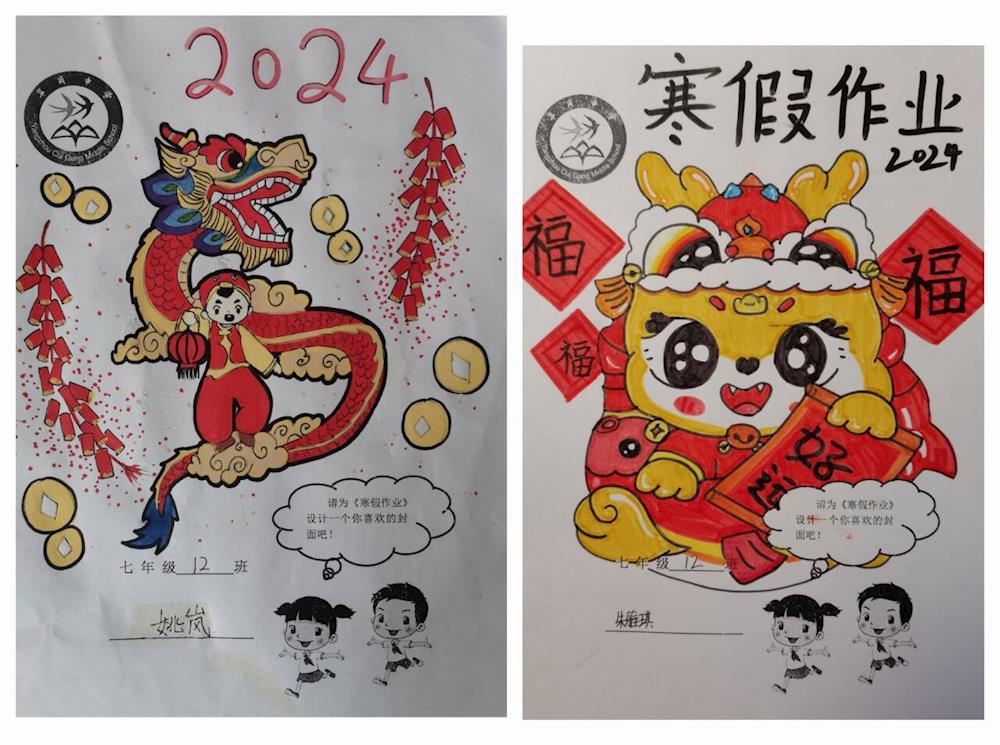 2024
Yangzhou Cui Gang Middle School
请为《寒假作业》
设计一个你喜欢的封
面吧！
七年级 12 班
姚岚
寒假作业
2024
Yangzhou Cui Gang Middle School
福
福
福
好
请为《寒假作业》
设计一个你喜欢的封
面吧！
七年级 12 班